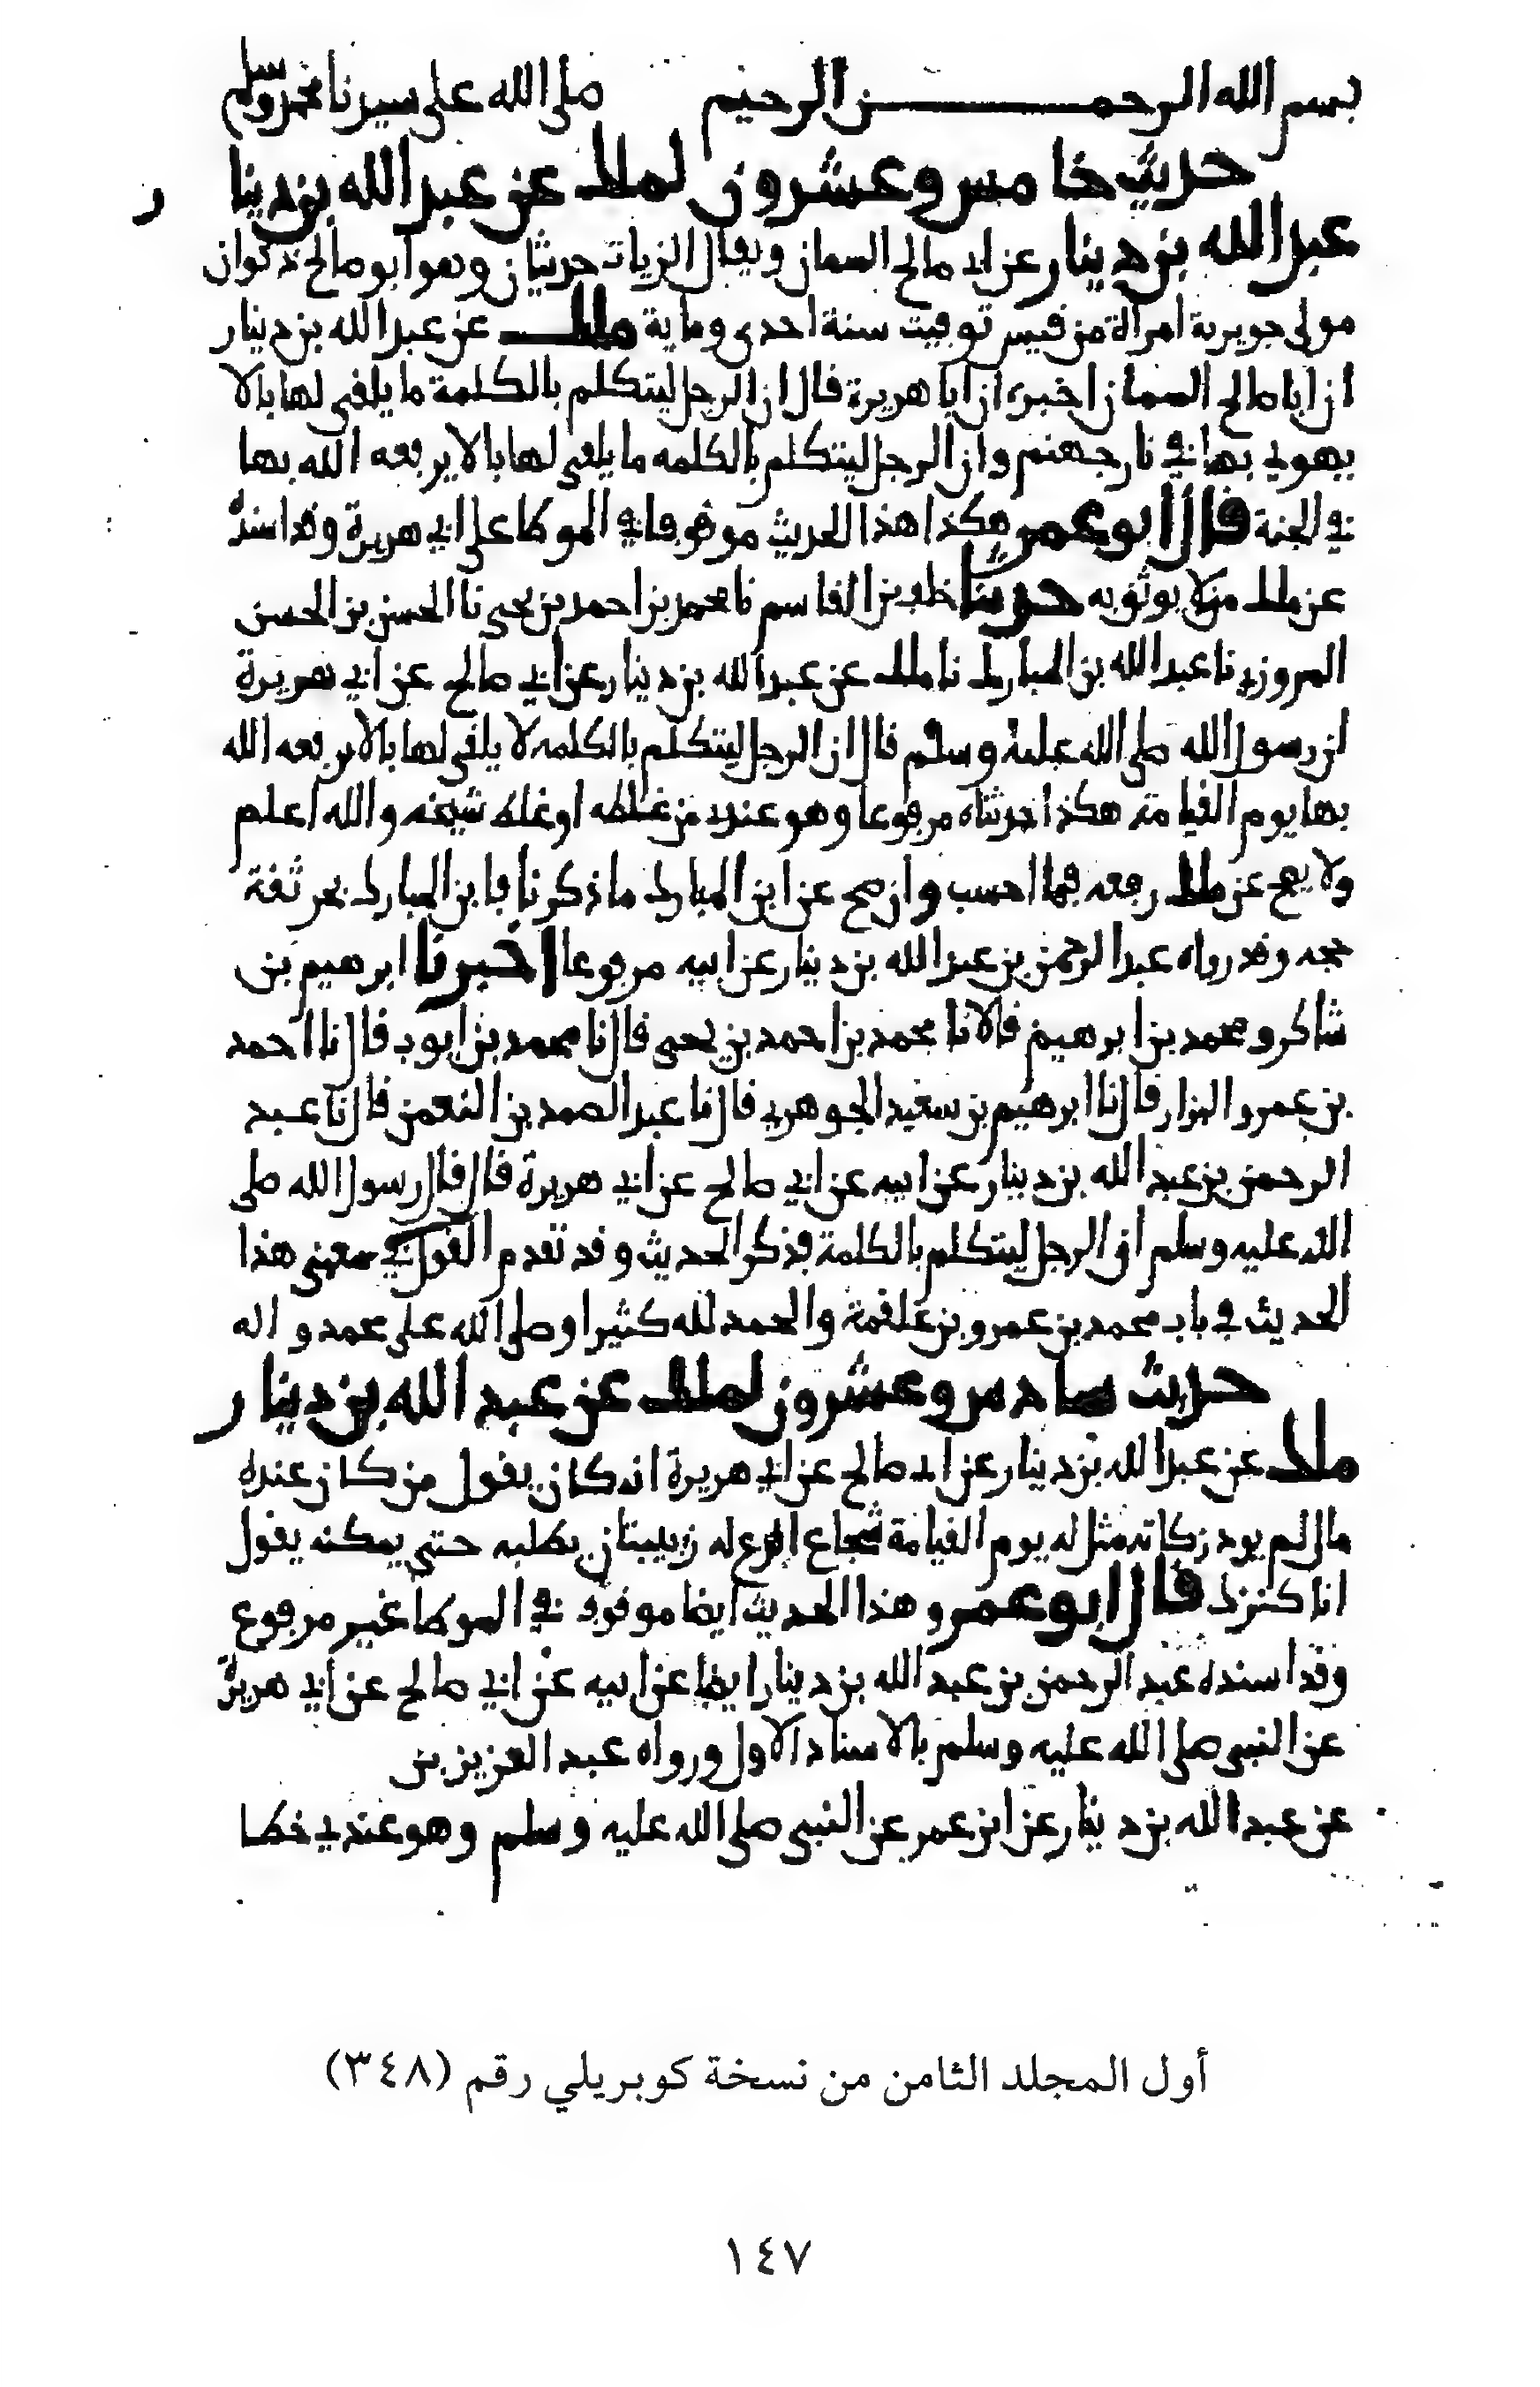 بسم الله الرحمن الرحيم صلى الله على سيدنا محمد وسلم
حديث خامس وعشرون لملك عن عبد الله بن دينار
عبد الله بن دينار عن ابي صالح السمان ويقال الزيات حديثان وهو ابو صالح ذكوان
مولى جويرية امراة من قيس توفيت سنة احدى وماية ملك عن عبد الله بن دينار
ان ابا صالح السمان اخبره ان ابا هريرة قال ان الرجل ليتكلم بالكلمة ما يلقي لها بالا
يهوي بها في نار جهنم وان الرجل ليتكلم بالكلمه ما يلقي لها بالا يرفعه الله بها
في الجنة قال ابو عمر هكذا هذا الحديث موقوفا في الموطا على ابي هريرة وقد اسنده
عن ملك من لا يوثق به حدثنا خلف بن القاسم نا محمد بن احمد بن يحيى نا الحسن بن الحسن
المروزي نا عبد الله بن المبارك نا ملك عن عبد الله بن دينار عن ابي صالح عن ابي هريرة
ان رسول الله صلى الله عليه وسلم قال ان الرجل ليتكلم بالكلمه لا يلقي لها بالا يرفعه الله
بها يوم القيامة هكذا حدثناه مرفوعا وهو عندي من غلطه او غلط شيخه والله اعلم
ولا يصح عن ملك رفعه فيما احسب وان صح عن ابن المبارك ما ذكرنا فابن المبارك ثقة
حجه وقد رواه عبد الرحمن بن عبد الله بن دينار عن ابيه مرفوعا اخبرنا ابرهيم بن
شاكر ومحمد بن ابرهيم قالا نا محمد بن احمد بن يحيى قال نا محمد بن ايوب قال نا احمد
بن عمرو البزار قال نا ابرهيم بن سعيد الجوهري قال نا عبد الصمد بن النعمن قال نا عبد
الرحمن بن عبد الله بن دينار عن ابيه عن ابي صالح عن ابي هريرة قال قال رسول الله صلى
الله عليه وسلم ان الرجل ليتكلم بالكلمة فذكر الحديث وقد تقدم القول في معنى هذا
الحديث في باب محمد بن عمرو بن علقمة والحمد لله كثيرا وصلى الله على محمد واله
حديث سادس وعشرون لملك عن عبد الله بن دينار
ملك عن عبد الله بن دينار عن ابي صالح عن ابي هريرة انه كان يقول من كان عنده
مال لم يود زكاته مثل له يوم القيامة شجاع اقرع له زبيبتان يطلبه حتى يمكنه يقول
انا كنزك قال ابو عمر وهذا الحديث ايضا موقوف في الموطا غير مرفوع
وقد اسنده عبد الرحمن بن عبد الله بن دينار ايضا عن ابيه عن ابي صالح عن ابي هريرة
عن النبي صلى الله عليه وسلم بالاسناد الاول ورواه عبد العزيز بن
عن عبد الله بن دينار عن ابن عمر عن النبي صلى الله عليه وسلم وهو عندي خطا
أول المجلد الثامن من نسخة كوبريلي رقم (٣٤٨)
١٤٧